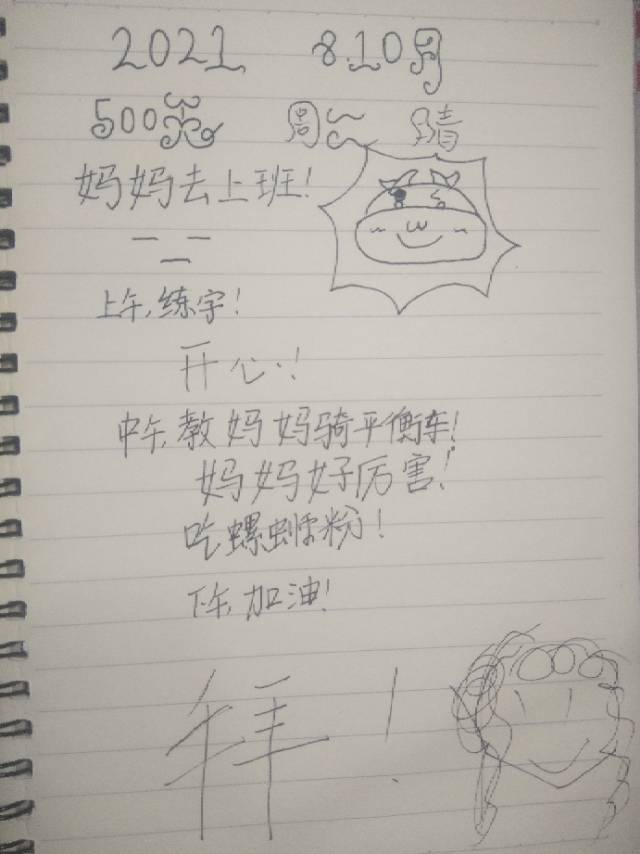 2021 8.10月
500天 周二 晴
妈妈去上班!
上午,练字!
开心!
中午,教妈妈骑平衡车!
妈妈好厉害!
吃螺蛳粉!
下午,加油!
拜!